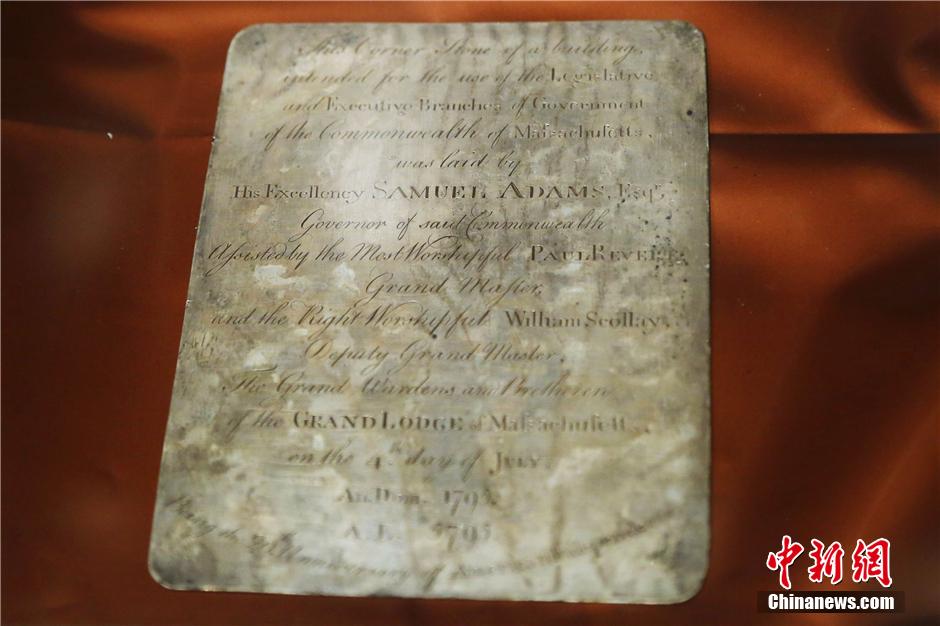 This Corner Stone of a building,
intended for the use of the Legislative
and Executive Branches of Government
of the Commonwealth of Maſsachuſetts,
was laid by
His Excellency SAMUEL ADAMS, Esqr.
Governor of said Commonwealth
Aſsisted by the Most Worshipful PAUL REVERE
Grand Maſter,
and the Right Worshipful William Scollay,
Deputy Grand Master,
The Grand Wardens and Bretheren
of the GRAND LODGE of Maſsachuſetts,
on the 4th day of JULY,
An. Dom. 1795.
A. L. 5795.
Being the Anniversary of American
中新网
Chinanews.com